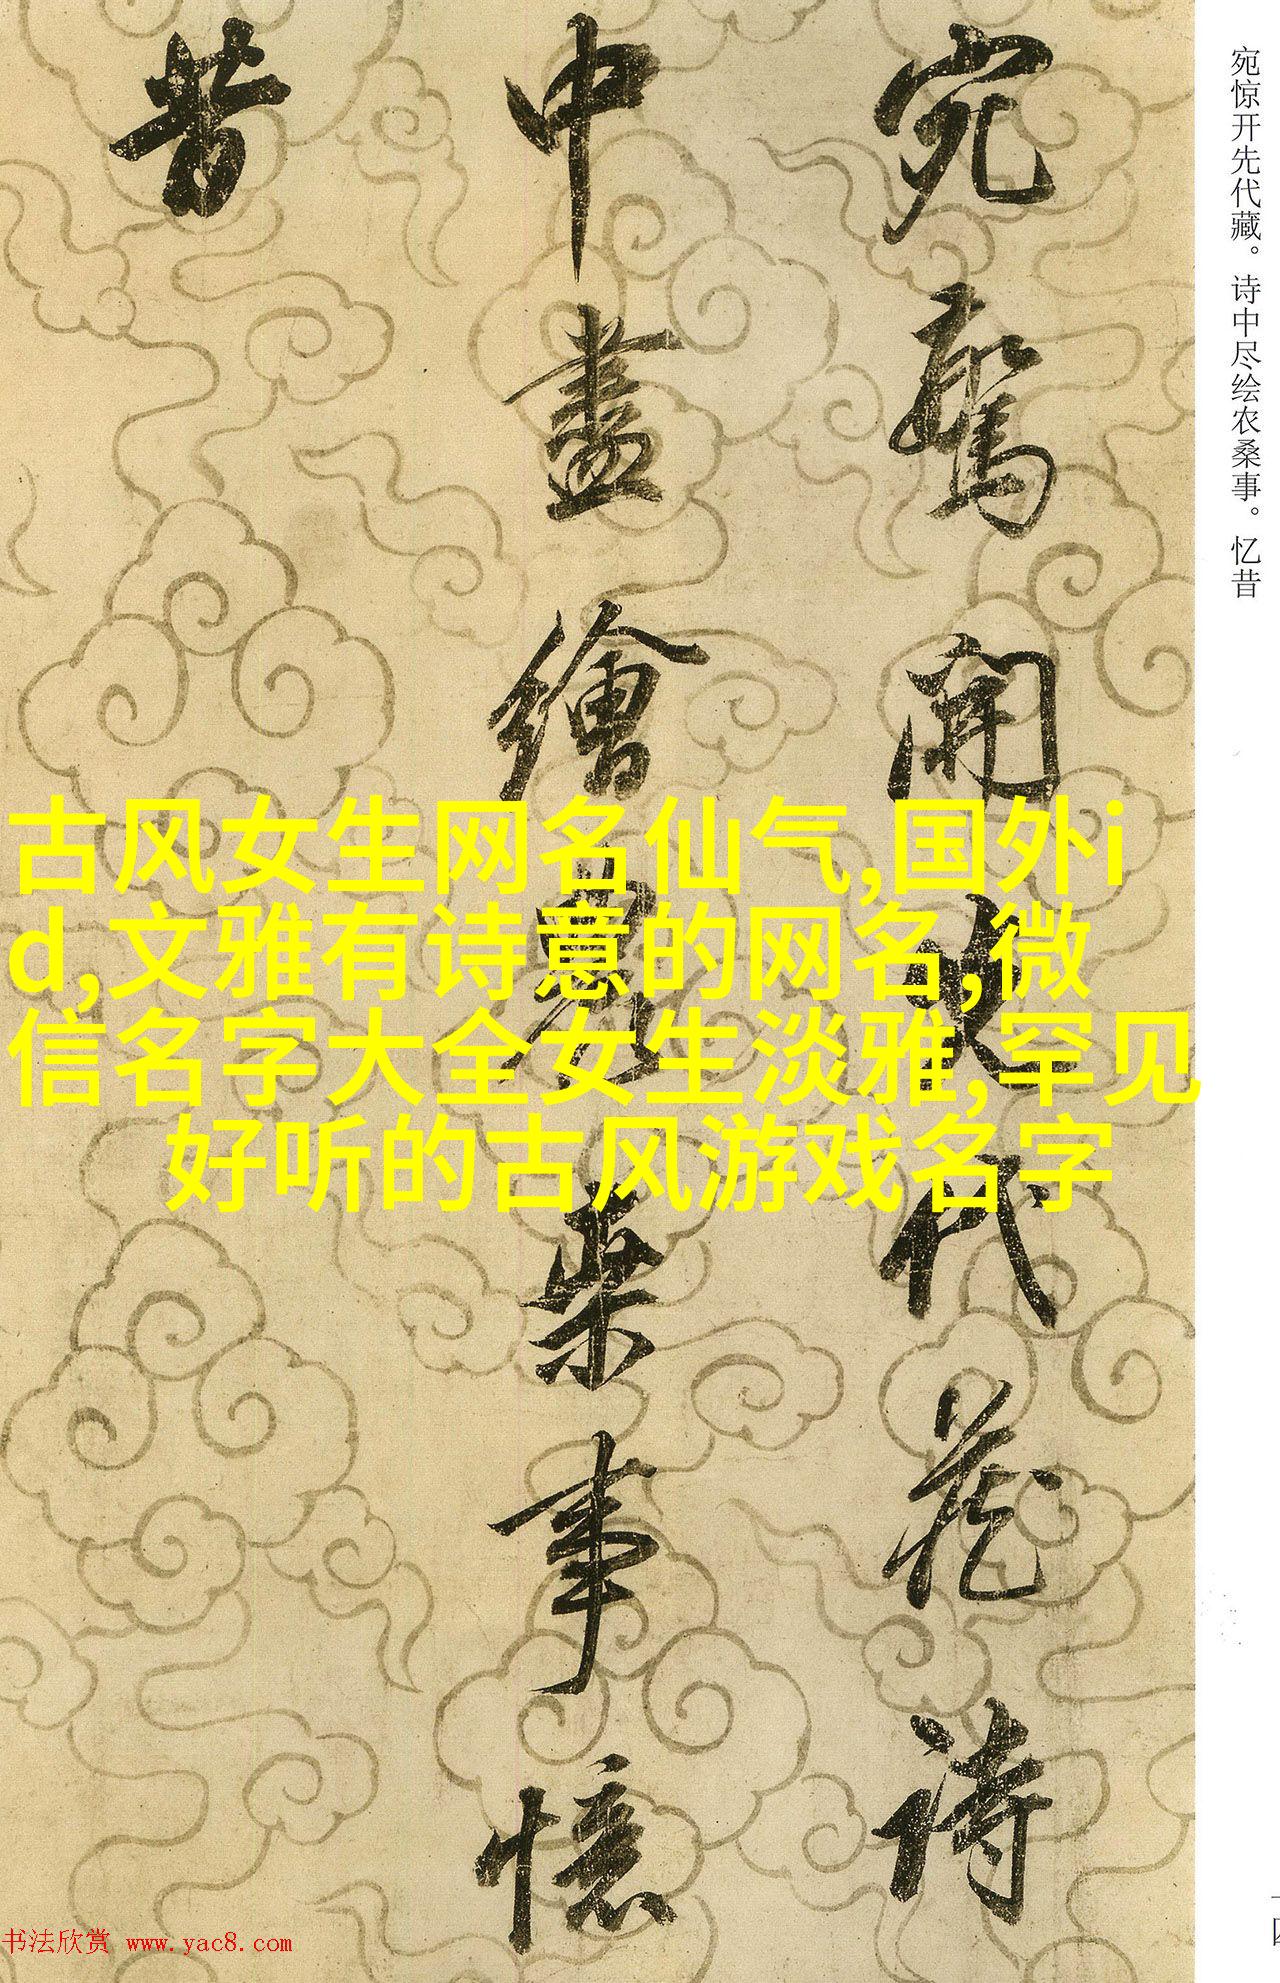 宛惊开先代藏。诗中尽绘农桑事。忆昔
宛驚開先代藏詩
中盡繪農桒事憶
昔
古风女生网名仙气,国外i
d,文雅有诗意的网名,微
信名字大全女生淡雅,罕见
好听的古风游戏名字
书法欣赏 www.yac8.com